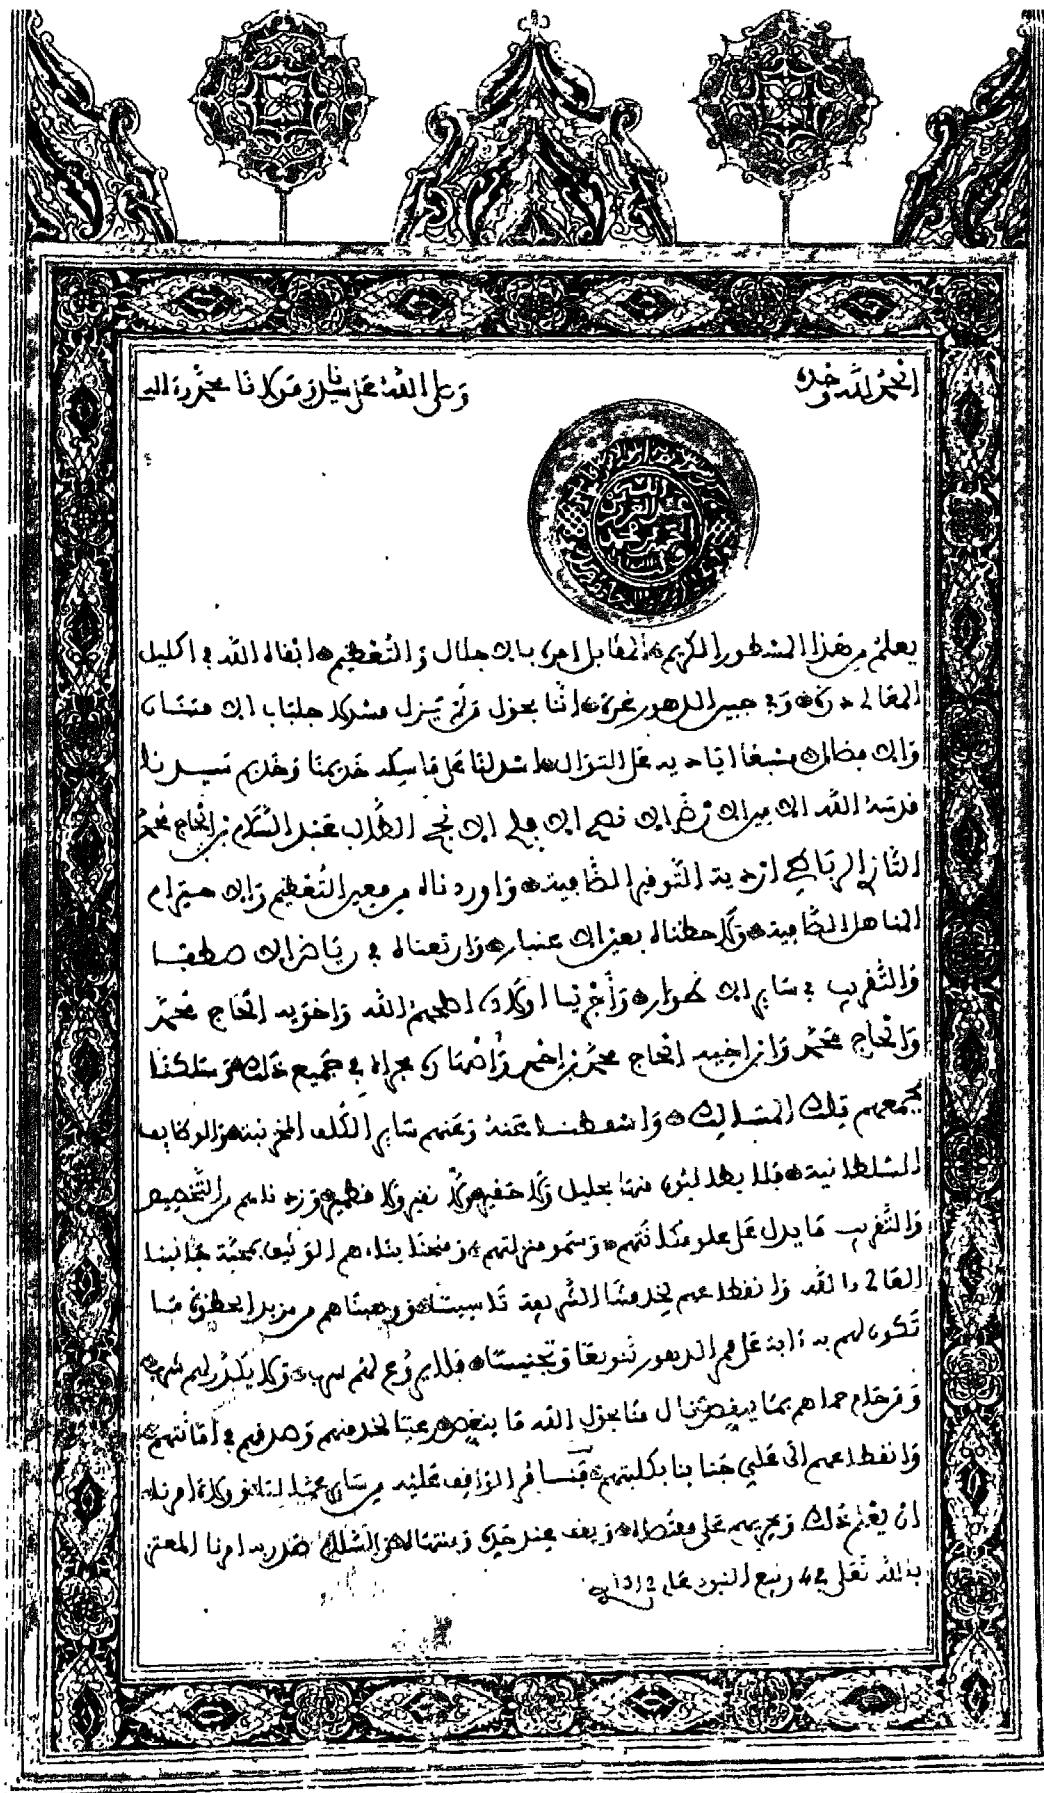 الحمد لله وحده
وصلى الله على سيدنا ومولانا محمد وآله
عبد العزيز بن الحسن
الله
يعلم من هذا المسطور الكريم المقابل أمره بالإجلال والتعظيم أبقاه الله في إكليل
المعالي درة وفي جبين الدهور غرة أننا بحول من لم يزل مسدلا جلباب الامتنان
والإفضال مسبغا أياديه على التوال أسدلنا على ماسكه خديمنا وخديم سيدنا
قدسه الله الطالب عبد السلام بن الحاج محمد
الرباطي أردية التوقير الضافية وأوردناه من معين التعظيم والاحترام
المناهل الصافية ولاحظناه بعين الاعتبار في رياض الاصطفا
والتقريب في سائر الأطوار وأجرينا أولاده أصلحهم الله وأخويه الحاج محمد
والحاج محمد وابن أخيه الحاج محمد بن أحمد مجراه في جميع ذلك وسلكنا
بجميعهم تلك المسالك وأسقطنا عنه وعنهم سائر الكلف المخزنية والوظائف
السلطانية فلا يطالبون منها بجليل ولا حقير ولا نقير ولا قطمير وزدناهم من التخصيص
والتقريب ما يدل على علو مكانتهم وسمو منزلتهم ومنحنا بناءهم الوثيق بمحبة جانبنا
العالي بالله وانقطاعهم لخدمتنا الشريفة تأسيسا ووهبناهم من مزيد الحظوة ما
تكون لهم به على مر الدهور تنويعا وتجنيسا فلا يروع لهم سرب ولا يكدر لهم شرب
ومن حام حماهم بما ينقص نال منا بحول الله ما ينغص رعيا لخدمتهم وصدقهم في أمانتهم
وانقطاعهم إلى علي جنابنا بكليتهم فنأمر الواقف عليه من سائر عمالنا وولاة أمرنا
أن يعلم ذلك ويجريهم على مقتضاه ويقف عند حده ومنتهاه والسلام صدر به أمرنا المعتز
بالله تعالى في 4 ربيع النبوي عام 1312